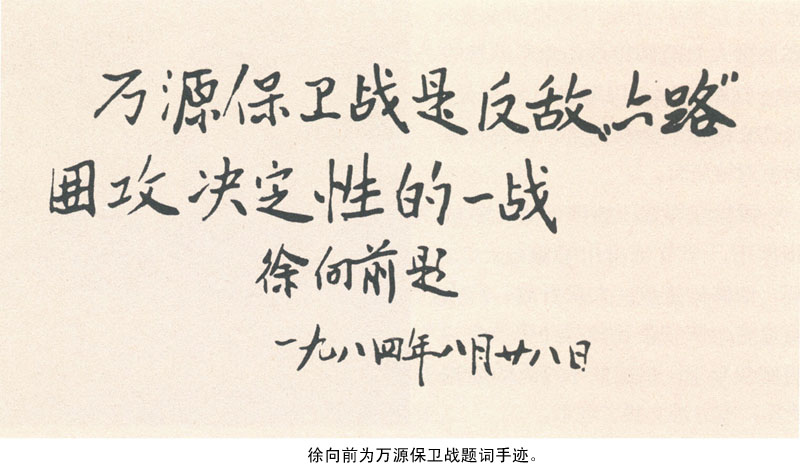 万源保卫战是反敌“六路”
围攻决定性的一战
徐向前题
一九八四年八月廿八日
徐向前为万源保卫战题词手迹。